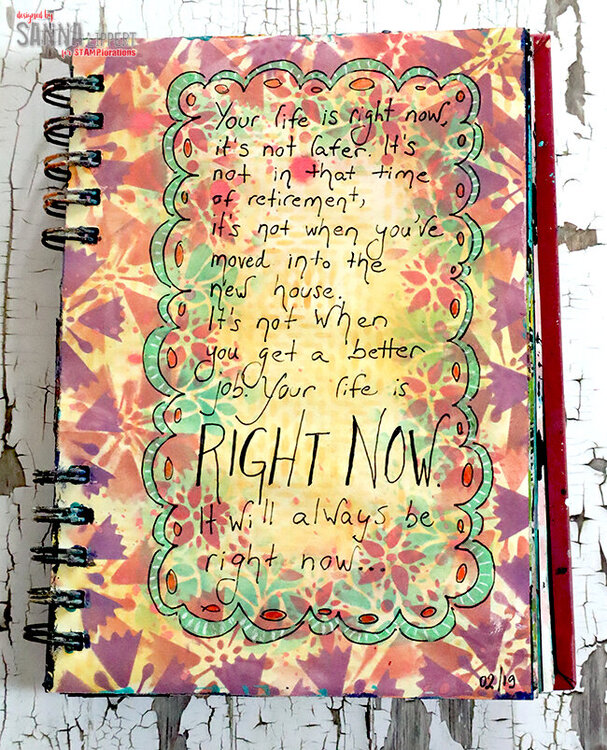 designed by
SANNA LIPPERT
for STAMPlorations
Your life is right now,
it's not later. It's
not in that time
of retirement,
it's not when you've
moved into the
new house.
It's not when
you get a better
job. Your life is
RIGHT NOW.
It will always be
right now...
02/19